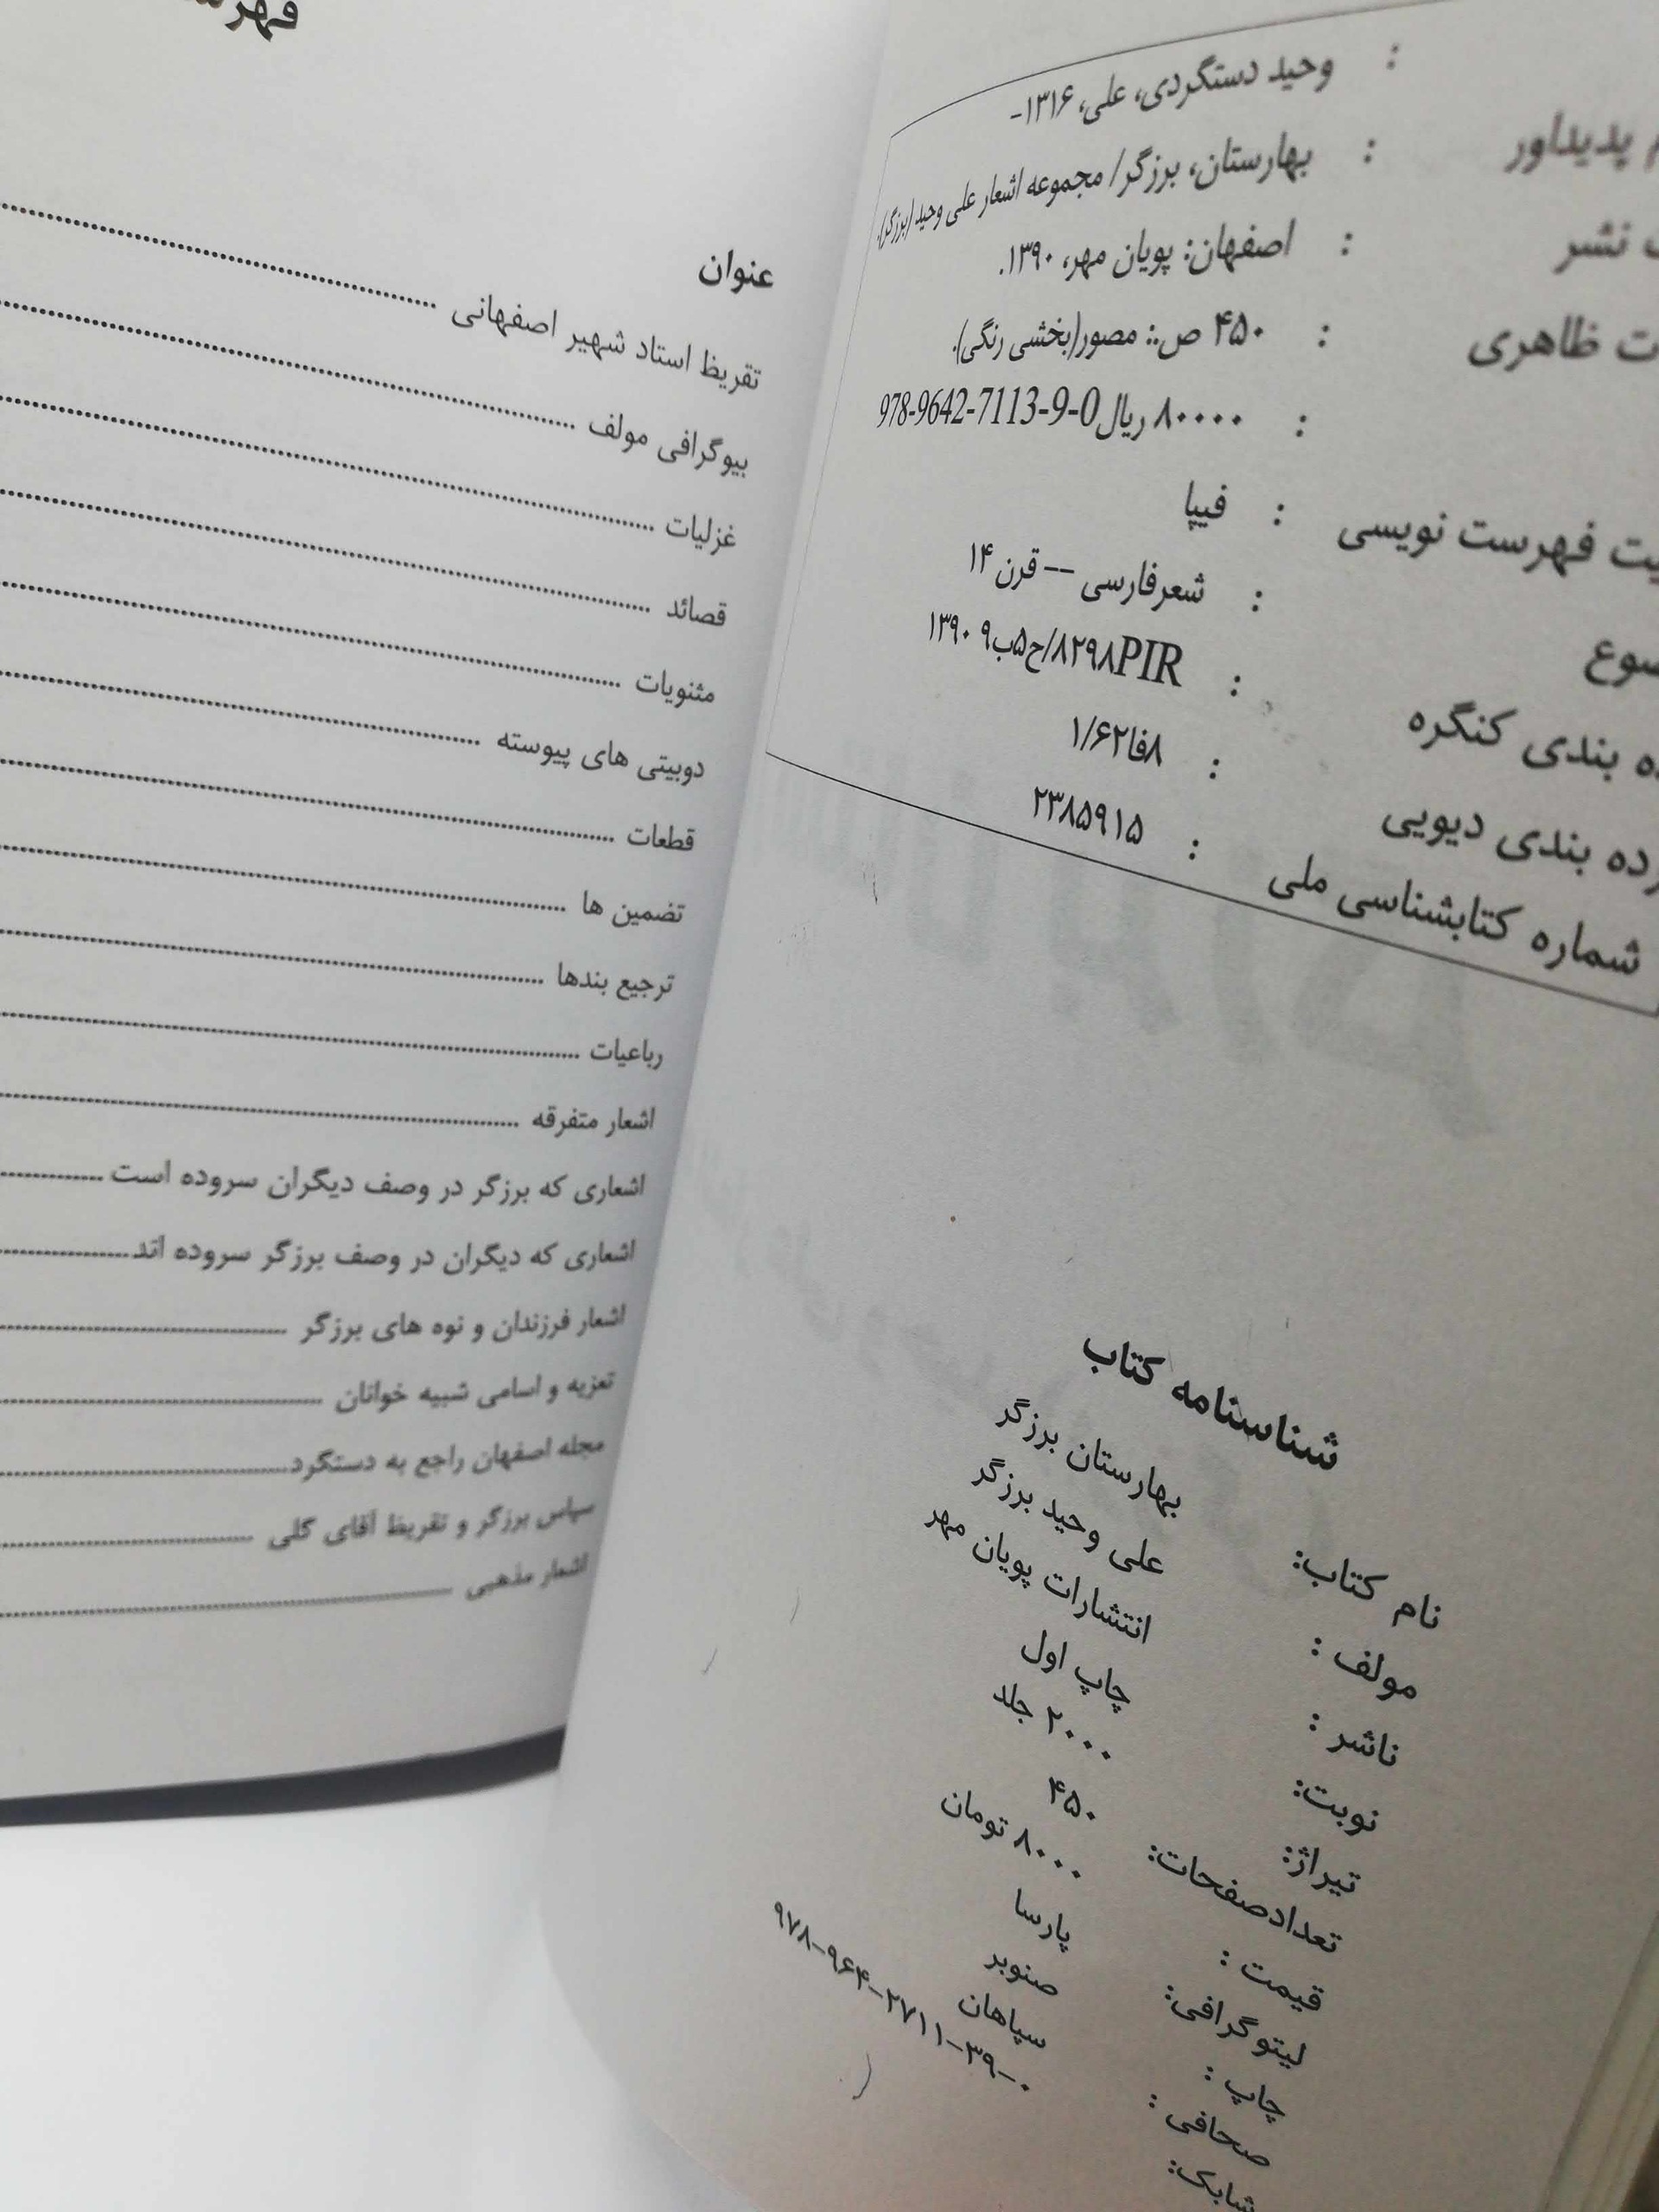 : وحید دستگردی، علی، ۱۳۱۶-
پدیداور : بهارستان، برزگر/ مجموعه اشعار علی وحید (برزگر).
نشر : اصفهان: پویان مهر، ۱۳۹۰.
ظاهری : ۴۵۰ ص.: مصور(بخشی رنگی).
: ۸۰۰۰۰ ریال 978-9642-7113-9-0
فهرست نویسی : فیپا
: شعرفارسی -- قرن ۱۴
بندی کنگره : ۸۲۹۸PIR/ح۵ب۹ ۱۳۹۰
رده بندی دیویی : ۸فا۱/۶۲
شماره کتابشناسی ملی : ۲۳۸۵۹۱۵
شناسنامه کتاب
نام کتاب: بهارستان برزگر
مولف : علی وحید برزگر
ناشر : انتشارات پویان مهر
نوبت: چاپ اول
تیراژ: ۲۰۰۰ جلد
تعدادصفحات: ۴۵۰
قیمت : ۸۰۰۰ تومان
لیتوگرافی: پارسا
چاپ : صنوبر
صحافی : سپاهان
شابک: ۹۷۸-۹۶۴-۲۷۱۱-۳۹-۰
عنوان
تقریظ استاد شهیر اصفهانی
بیوگرافی مولف
غزلیات
قصائد
مثنویات
دوبیتی های پیوسته
قطعات
تضمین ها
ترجیع بندها
رباعیات
اشعار متفرقه
اشعاری که برزگر در وصف دیگران سروده است
اشعاری که دیگران در وصف برزگر سروده اند
اشعار فرزندان و نوه های برزگر
تعزیه و اسامی شبیه خوانان
مجله اصفهان راجع به دستگرد
سپاس برزگر و تقریظ آقای گلی
اشعار مذهبی